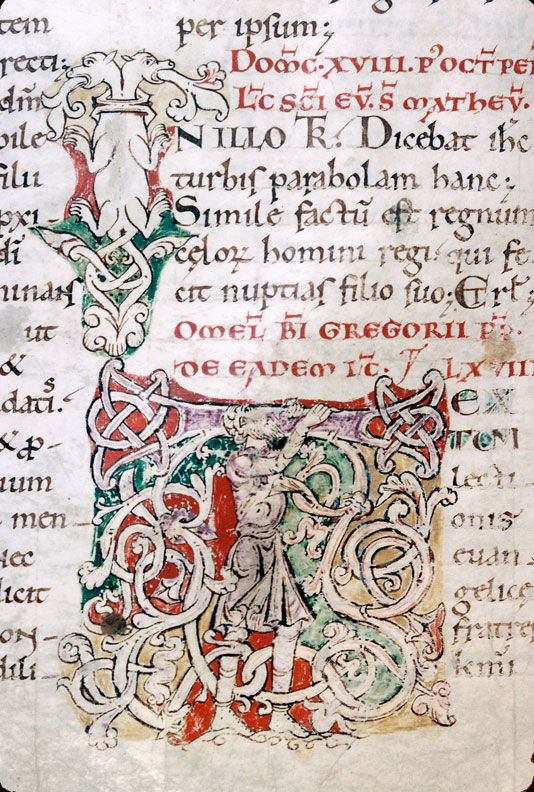 tem
recti;
dm̅
bile
filii
pxi-
di
minans
ut
&
datis.
& ꝓ-
uum
men-
nec
licit
on-
dili-
per ipsum;
DOM̅C·XVIII·P' OCT̅ PEN
LC̅ SC̅I EV̅. S̅ MATHEV̅.
INILLO T̅R. Dicebat ihc̅
turbis parabolam hanc;
Simile factu̅ est regnum
celorꝝ homini regi· qui fe-
cit nuptias filio suo; Et rl̅;
OMEL̅ BI̅ GREGORII P̅P̅.
DE EADEM LC̅. LXVIII
TEX
TUM
lecti-
onis
euan-
gelice
fratres
kmi̅